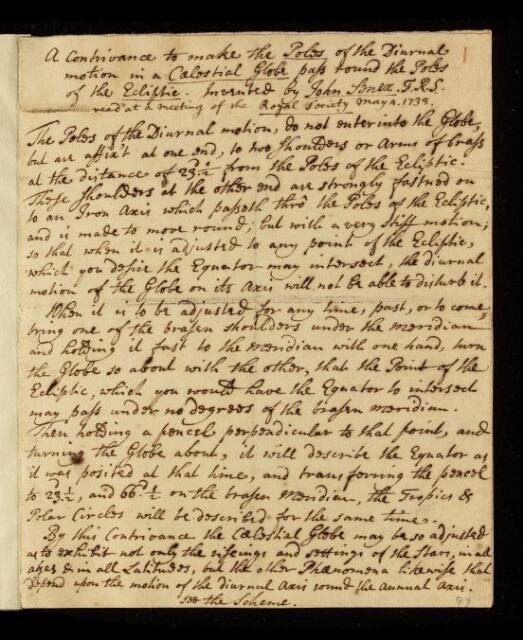 A Contrivance to make the Poles of the Diurnal
motion in a Cœlestial Globe pass round the Poles
of the Ecliptic. Invented by John Senex. F.R.S.
read at a meeting of the Royal Society May 4. 1738.
The Poles of the Diurnal motion, do not enter into the Globe,
but are affix't at one end, to two shoulders or Arms of brass
at the distance of 23d.½ from the Poles of the Ecliptic.
These shoulders at the other end are strongly fastned on
to an Iron Axis which passeth thrô the Poles of the Ecliptic,
and is made to move round, but with a very stiff motion;
so that when it is adjusted to any point of the Ecliptic,
which you desire the Equator may intersect, the diurnal
motion of the Globe on its Axis will not be able to disturb it.
When it is to be adjusted for any time, past, or to come,
bring one of the brasen shoulders under the meridian
and holding it fast to the meridian with one hand, turn
the Globe so about with the other, that the Point of the
Ecliptic, which you would have the Equator to intersect
may pass under no degrees of the brasen meridian.
Then holding a pencel perpendicular to that point, and
turning the Globe about, it will describe the Equator as
it was posited at that time, and transferring the pencel
to 23.½, and 66d.½ on the brasen Meridian, the Tropics &
Polar Circles will be described for the same time.
By this Contrivance the Cœlestial Globe may be so adjusted
as to exhibit not only the riseings and settings of the Stars, in all
ages & in all Latitudes, but the other Phænomena likewise that
depend upon the motion of the diurnal Axis round the Annual Axis.
see the Scheme.